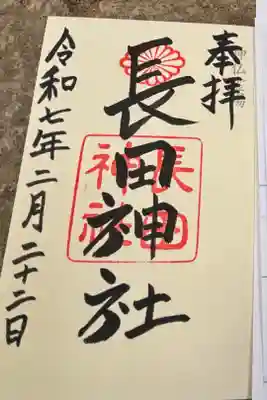 奉拝
長田神社
長田
神社
令和七年二月二十二日